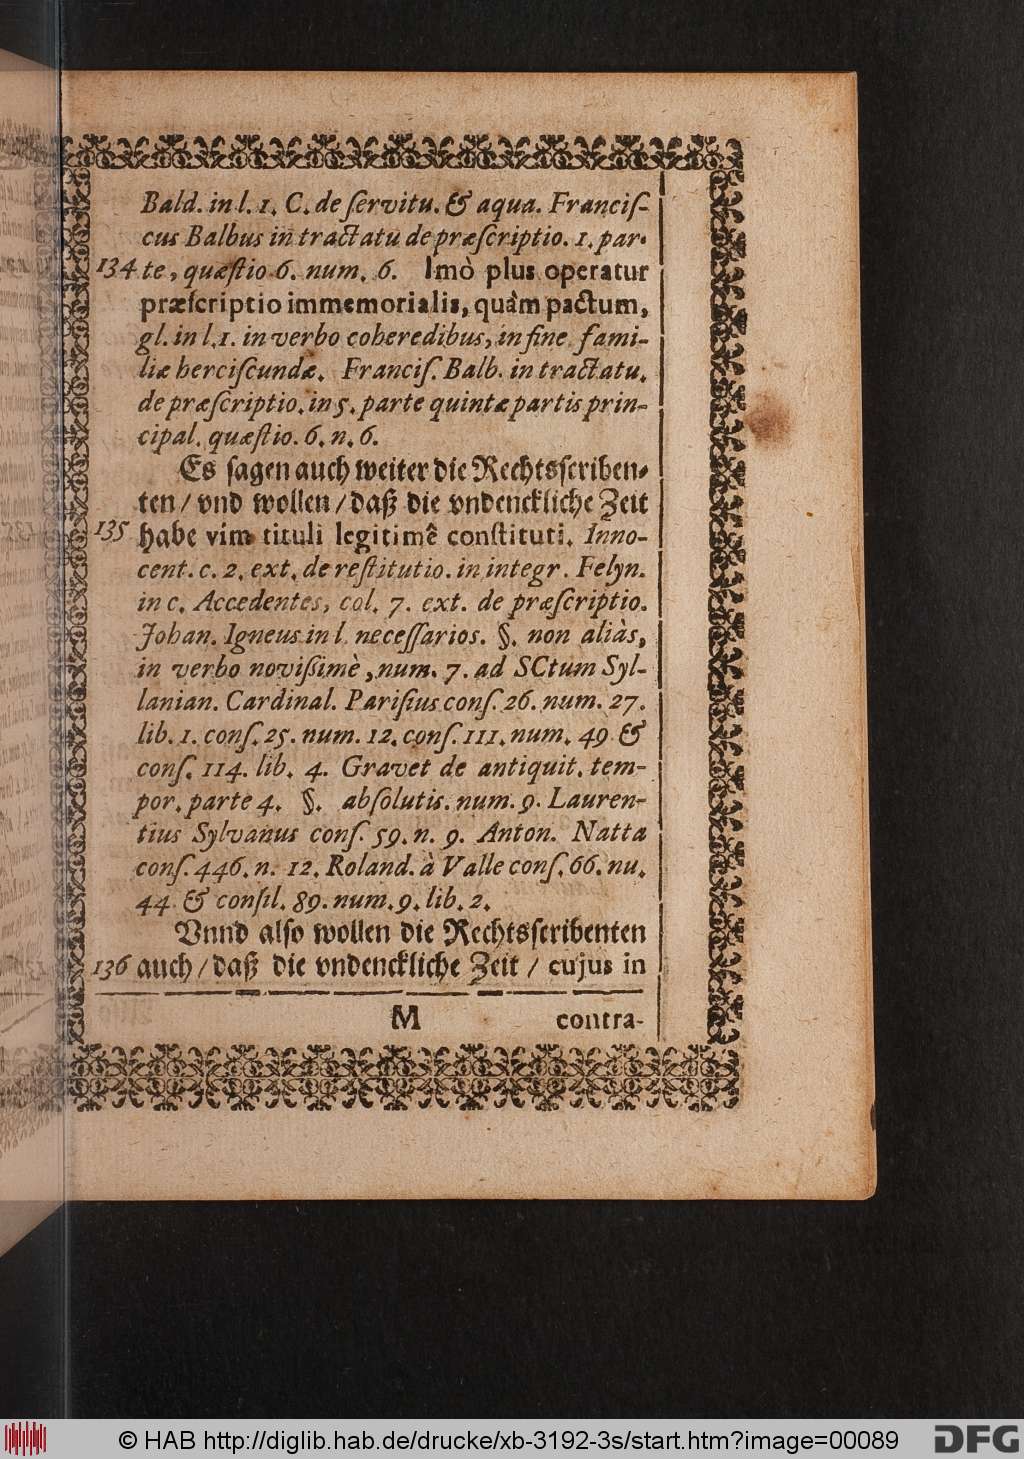 Bald. in l. 1. C. de ſervitu. & aqua. Franciſ-
cus Balbus in tractatu de præſcriptio. 1. par-
134 te, quæſtio 6. num. 6. Imò plus operatur
præſcriptio immemorialis, quàm pactum,
gl. in l. 1. in verbo coheredibus, in fine. fami-
liæ herciſcundæ. Franciſ. Balb. in tractatu.
de præſcriptio. in 5. parte quintæ partis prin-
cipal. quæſtio. 6. n. 6.
Es ſagen auch weiter die Rechtsſcriben-
ten / vnd wollen / daß die vndenckliche Zeit
135 habe vim tituli legitimê conſtituti. Inno-
cent. c. 2. ext. de reſtitutio. in integr. Felyn.
in c. Accedentes, col. 7. ext. de præſcriptio.
Johan. Igneus in l. neceſſarios. §. non aliàs,
in verbo noviſſimè, num. 7. ad SCtum Syl-
lanian. Cardinal. Pariſius conſ. 26. num. 27.
lib. 1. conſ. 25. num. 12. conſ. 111. num. 49 &
conſ. 114. lib. 4. Gravet de antiquit. tem-
por. parte 4. §. abſolutis. num. 9. Lauren-
tius Sylvanus conſ. 59. n. 9. Anton. Natta
conſ. 446. n. 12. Roland. à Valle conſ. 66. nu.
44 & conſil. 89. num. 9. lib. 2.
Vnnd alſo wollen die Rechtsſcribenten
136 auch / daß die vndenckliche Zeit / cujus in
M contra-
© HAB http://diglib.hab.de/drucke/xb-3192-3s/start.htm?image=00089
DFG